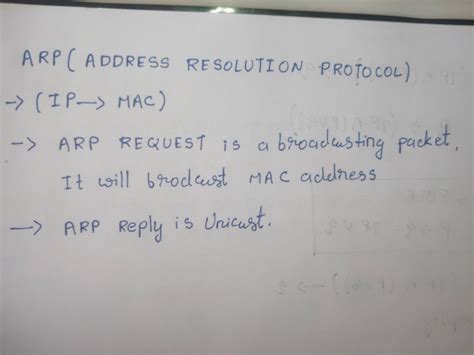 ARP( ADDRESS RESOLUTION PROTOCOL)
-> (IP—> MAC)
-> ARP REQUEST is a broadcasting packet,
It will brodcust MAC address
—> ARP Reply is Unicast.